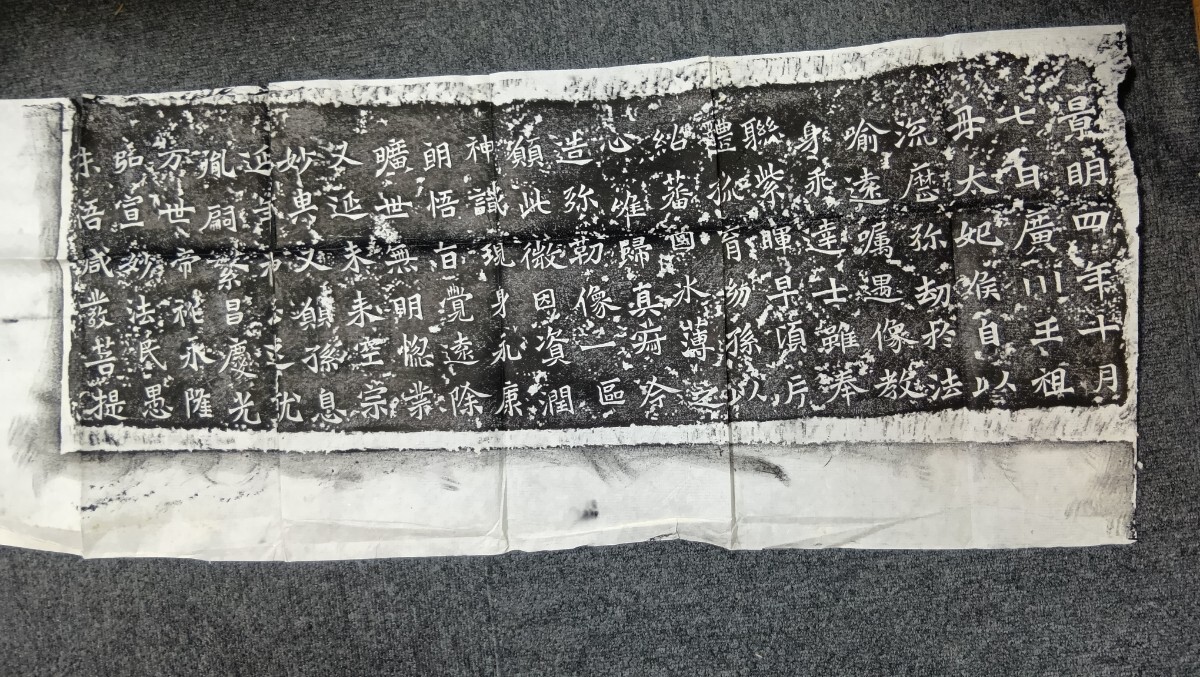 景明四年十月
七日廣川王祖
母大妃侯自以
流歷弥劫於法
喻遠囑遇像教
身乘達士雖奉
聯紫暉早頃片
體孤育幼孫以
紹蕃國氷薄之
心惟歸真寂今
造弥勒像一區
願此微因資潤
神識現身永康
朗悟旨覺遠除
曠世無明惚業
又延未来空宗
妙果又願孫息
延
胤嗣繁昌慶光
万世帝祚永隆
弘宣妙法昏愚
未悟咸發菩提